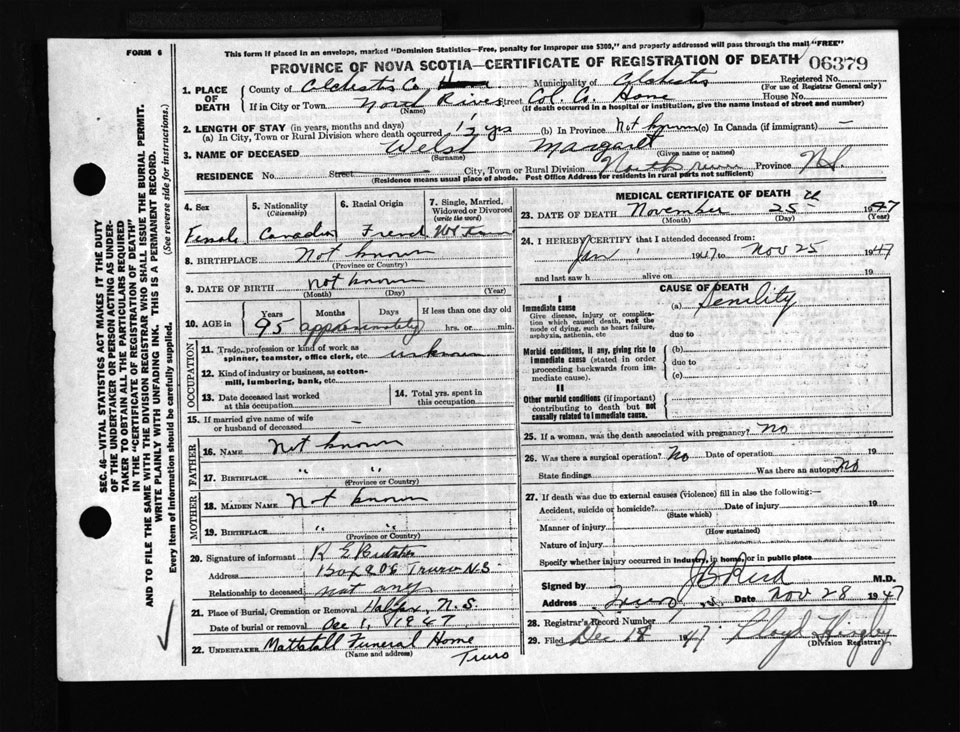 FORM 6
This form if placed in an envelope, marked "Dominion Statistics—Free, penalty for improper use $300," and properly addressed will pass through the mail "FREE"
PROVINCE OF NOVA SCOTIA—CERTIFICATE OF REGISTRATION OF DEATH 06379
1. PLACE OF DEATH
County of Colchester Co Municipality of Colchester Registered No.
(For use of Registrar General only)
If in City or Town North River Street Col. Co. Home House No.
(Name) (If death occurred in a hospital or institution, give the name instead of street and number)
2. LENGTH OF STAY (in years, months and days)
(a) In City, Town or Rural Division where death occurred 12 yrs (b) In Province Not known (c) In Canada (if immigrant) —
3. NAME OF DECEASED Welsh Margaret
(Surname) (Given name or names)
RESIDENCE No. Street City, Town or Rural Division North River Province N.S.
(Residence means usual place of abode. Post Office Address for residents in rural parts not sufficient)
4. Sex
Female
5. Nationality
(Citizenship)
Canadian
6. Racial Origin
French
7. Single, Married, Widowed or Divorced
(write the word)
8. BIRTHPLACE Not known
(Province or Country)
9. DATE OF BIRTH not known
(Month) (Day) (Year)
10. AGE in Years Months Days If less than one day old
95 approximately hrs. or min.
OCCUPATION
11. Trade, profession or kind of work as spinner, teamster, office clerk, etc. unknown
12. Kind of industry or business, as cotton-mill, lumbering, bank, etc.
13. Date deceased last worked at this occupation
14. Total yrs. spent in this occupation
15. If married give name of wife or husband of deceased —
FATHER
16. NAME Not known
17. BIRTHPLACE " "
(Province or Country)
MOTHER
18. MAIDEN NAME Not known
19. BIRTHPLACE " "
(Province or Country)
20. Signature of informant
Address Box 206 Truro N.S.
Relationship to deceased not any
21. Place of Burial, Cremation or Removal Halifax, N.S.
Date of burial or removal Dec 1, 1947
22. UNDERTAKER Mattatall Funeral Home
(Name and address) Truro
MEDICAL CERTIFICATE OF DEATH
23. DATE OF DEATH November 25th 1947
(Month) (Day) (Year)
24. I HEREBY CERTIFY that I attended deceased from:
Jan 1 1947 to Nov 25 1947
and last saw h alive on 19
CAUSE OF DEATH
I
Immediate cause
Give disease, injury or complication which caused death, not the mode of dying, such as heart failure, asphyxia, asthenia, etc
(a) Senility
due to
Morbid conditions, if any, giving rise to immediate cause (stated in order proceeding backwards from immediate cause).
(b)
due to
(c)
II
Other morbid conditions (if important) contributing to death but not causally related to immediate cause.
25. If a woman, was the death associated with pregnancy? No
26. Was there a surgical operation? No Date of operation 19
State findings Was there an autopsy? No
27. If death was due to external causes (violence) fill in also the following:—
Accident, suicide or homicide? Date of injury 19
(State which)
Manner of injury
(How sustained)
Nature of injury
Specify whether injury occurred in industry, in home, or in public place
Signed by J B Reid M.D.
Address Truro N.S. Date Nov 28 1947
28. Registrar's Record Number 7
29. Filed Dec 18 1947 Lloyd
(Division Registrar)
SEC. 46—VITAL STATISTICS ACT MAKES IT THE DUTY
OF THE UNDERTAKER OR PERSON ACTING AS UNDER-
TAKER TO OBTAIN ALL THE PARTICULARS REQUIRED
IN THE "CERTIFICATE OF REGISTRATION OF DEATH"
AND TO FILE THE SAME WITH THE DIVISION REGISTRAR WHO SHALL ISSUE THE BURIAL PERMIT.
WRITE PLAINLY WITH UNFADING INK. THIS IS A PERMANENT RECORD.
Every item of information should be carefully supplied.
(See reverse side for instructions.)